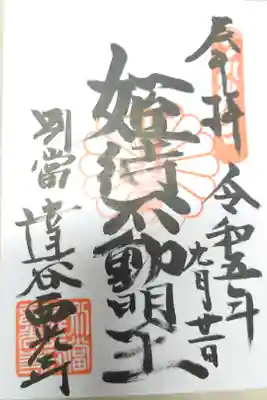 奉拝
令和五年
九月廿一日
姫待不動明王
別當
達谷西光寺